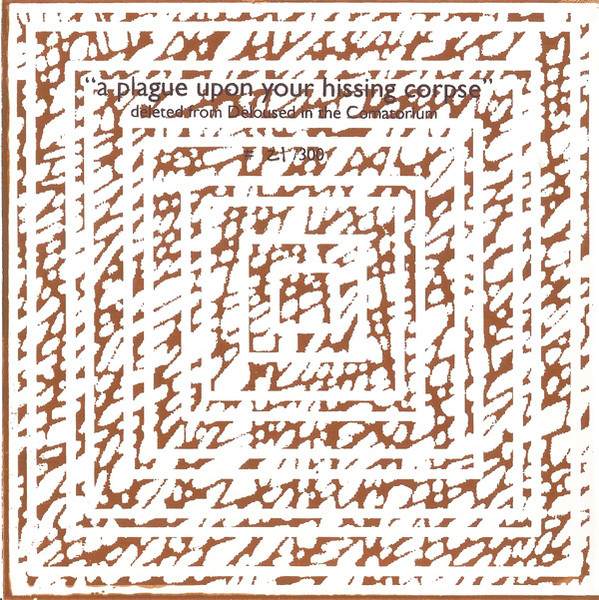 "a plague upon your hissing corpse"
deleted from Deloused in the Comatorium
# 21/300